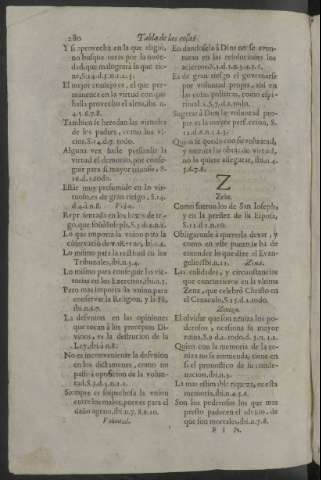 280 Tabla de las cosas
Y si aprovecha en la que eligiò,
no busque otras por la nove-
dad, que malogrará la que tie-
ne, S.14.d.5.n.1.2.3.
El mejor consejo es, el que per-
manece en la virtud con que
halla provecho el alma, ibi. n.
4.5.6.7.8.
Tambien se heredan las virtudes
de los padres, como los vi-
cios, S.14.d.7. todo.
Alguna vez suele pretender la
virtud el demonio, por conse-
guir para si mayor triunfo, S.
Estàr muy presumido en la vir-
tud, es de gran riesgo, S.14.
Representada en los haces de tri-
Lo que importa la vnion para la
Lo mismo para la rectitud en los
Tribunales, ibi. n.3.4.
Lo mismo para conseguir las vi-
ctorias en los Exercitos, ibi. n.5.
Pero mas importa la vnion para
conservar la Religion, y la Fè,
ibi. n.6.7.
La desvnion en las opiniones
que tocan à los preceptos Di-
vinos, es la destruicion de la
Ley, ibi. n.8.
No es inconveniente la desvnion
en los dictamenes, como no
passe à oposicion de la volun-
tad, S.3.d.3.n.1.2.
Siempre es sospechosa la vnion
entre los malos, porque es para el
daño ageno, ibi. n.7. 8.9.10.
Voluntad.
En dandosela à Dios no se aven-
turan en las resoluciones los
aciertos, S.1.d.1.n.3.4.5.6.
Es de gran riesgo el governarse
por voluntad propia, assi en
las cosas politicas, como espi-
ritual. S.7.d.2. todo.
Sugetar à Dios la voluntad pro-
pia es la mayor perfeccion, S.
12.d.8.n.1.2.3.
Quien se queda con su voluntad,
y ofrece las obras de virtud,
no la quiere adegazar, ibi. n.4.
5.6.7.8.
Z
Zelos.
Como fueron los de San Joseph,
y en la preñez de su Esposa,
S.12.d.1.n.10.
Obligandose à guardar dexar, y
como en este punto se ha de
entender lo que dize el Evan-
gelio, ibi. n.11. Zena.
Las calidades, y circunstancias
que concurrieron en la vltima
Zena, que celebrò Christo en
el Cenaculo, S.13.d.2. todo.
Zeniza.
El olvidar que son zeniza los po-
derosos, ocasiona su mayor
ruina, S.9.d.2. todo. d.3.n.1.2.
Quien con la memoria de la ze-
niza no se enmienda, tiene en
si el pronostico de su conde-
nacion, ibi. n.3.
La mas estimable riqueza, es esta
memoria, ibi. n.4.5.6.
Son los poderosos los que mas
presto padecen el olvido, de
que son mortales, ibi. n.7.8.
F I N.